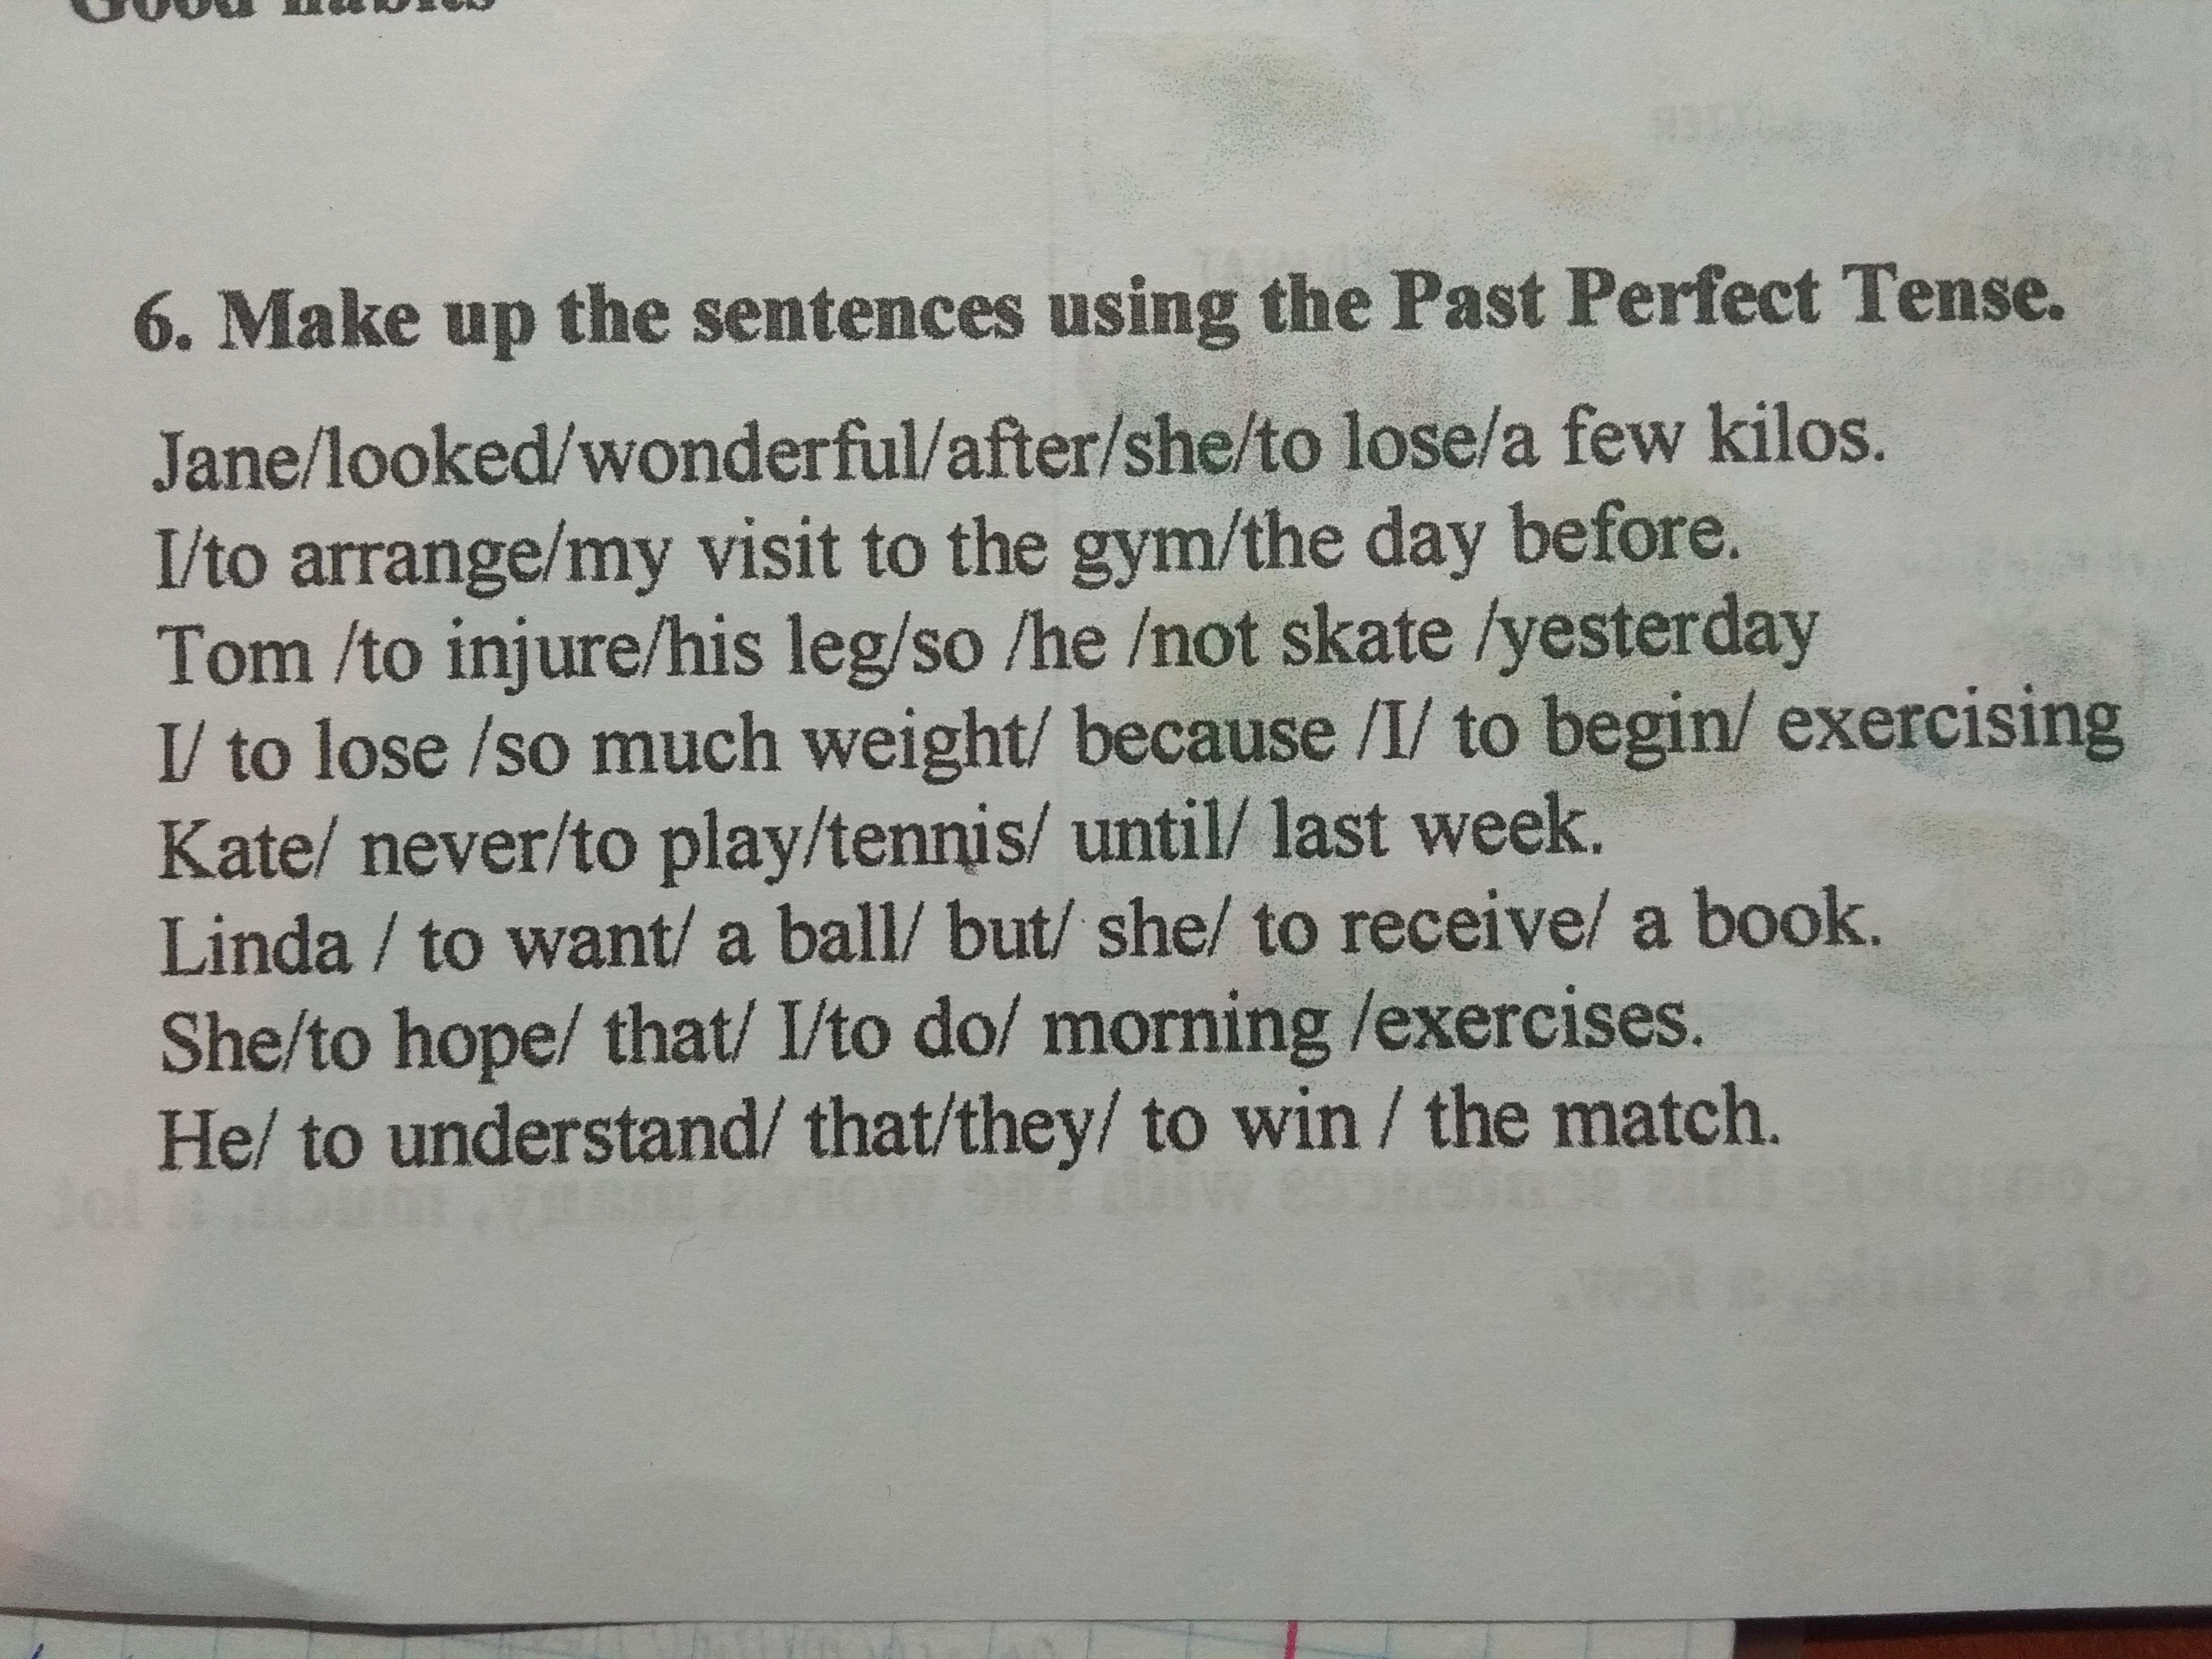 Good habits
6. Make up the sentences using the Past Perfect Tense.
Jane/looked/wonderful/after/she/to lose/a few kilos.
I/to arrange/my visit to the gym/the day before.
Tom /to injure/his leg/so /he /not skate /yesterday
I/ to lose /so much weight/ because /I/ to begin/ exercising
Kate/ never/to play/tennis/ until/ last week.
Linda / to want/ a ball/ but/ she/ to receive/ a book.
She/to hope/ that/ I/to do/ morning /exercises.
He/ to understand/ that/they/ to win / the match.
. Complete this sentences with the words many, much, a lot
of, a little, a few.